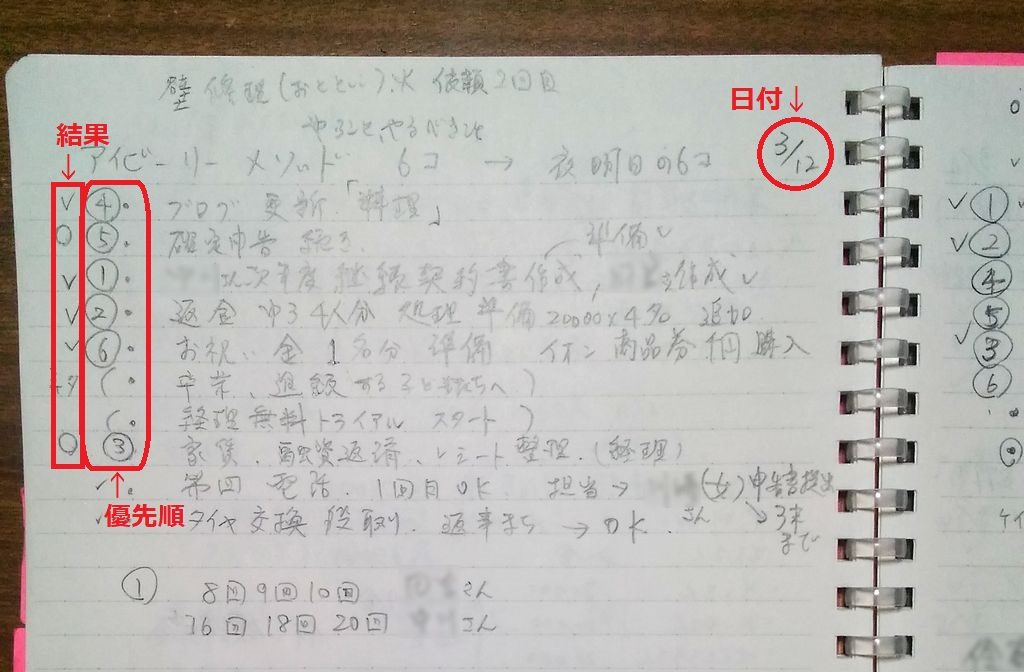 壁 修理(おととい)火 依頼2回目
日付↓
やること やるべきこと
結果
↓
アイビーリーメソッド 6コ → 夜明日の6コ
3/12
✓ ④・ ブログ更新「料理」
○ ⑤・ 確定申告 続き
準備✓
✓ ①・ 次年度継続契約書作成, 作成✓
✓ ②・ 返金 4人分 処理準備 20000×4名 追加
✓ ⑥・ お祝い金 1名分 準備 イオン商品券 購入
(・ 卒業、進級する子どもたちへ)
(・ 経理無料トライアル スタート)
○ ③ 家賃、融資返済、レシート整理、(経理)
✓・ 電話、1回目OK 担当→ (女)申告書提出
↑
優先順
✓ タイヤ交換段取り、返事まち → OK さん 3末まで
① 8回9回10回 さん
16回18回20回 さん
✓①
✓②
④
⑤
✓③
⑥